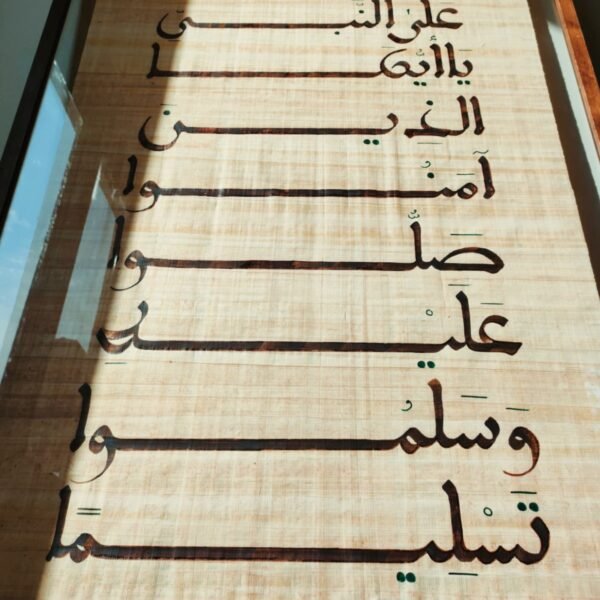 على النبي
يا أيها
الذين
آمنوا
صلُّوا
عَلَيْهِ
وَسَلِّمُوا
تَسْلِيمًا